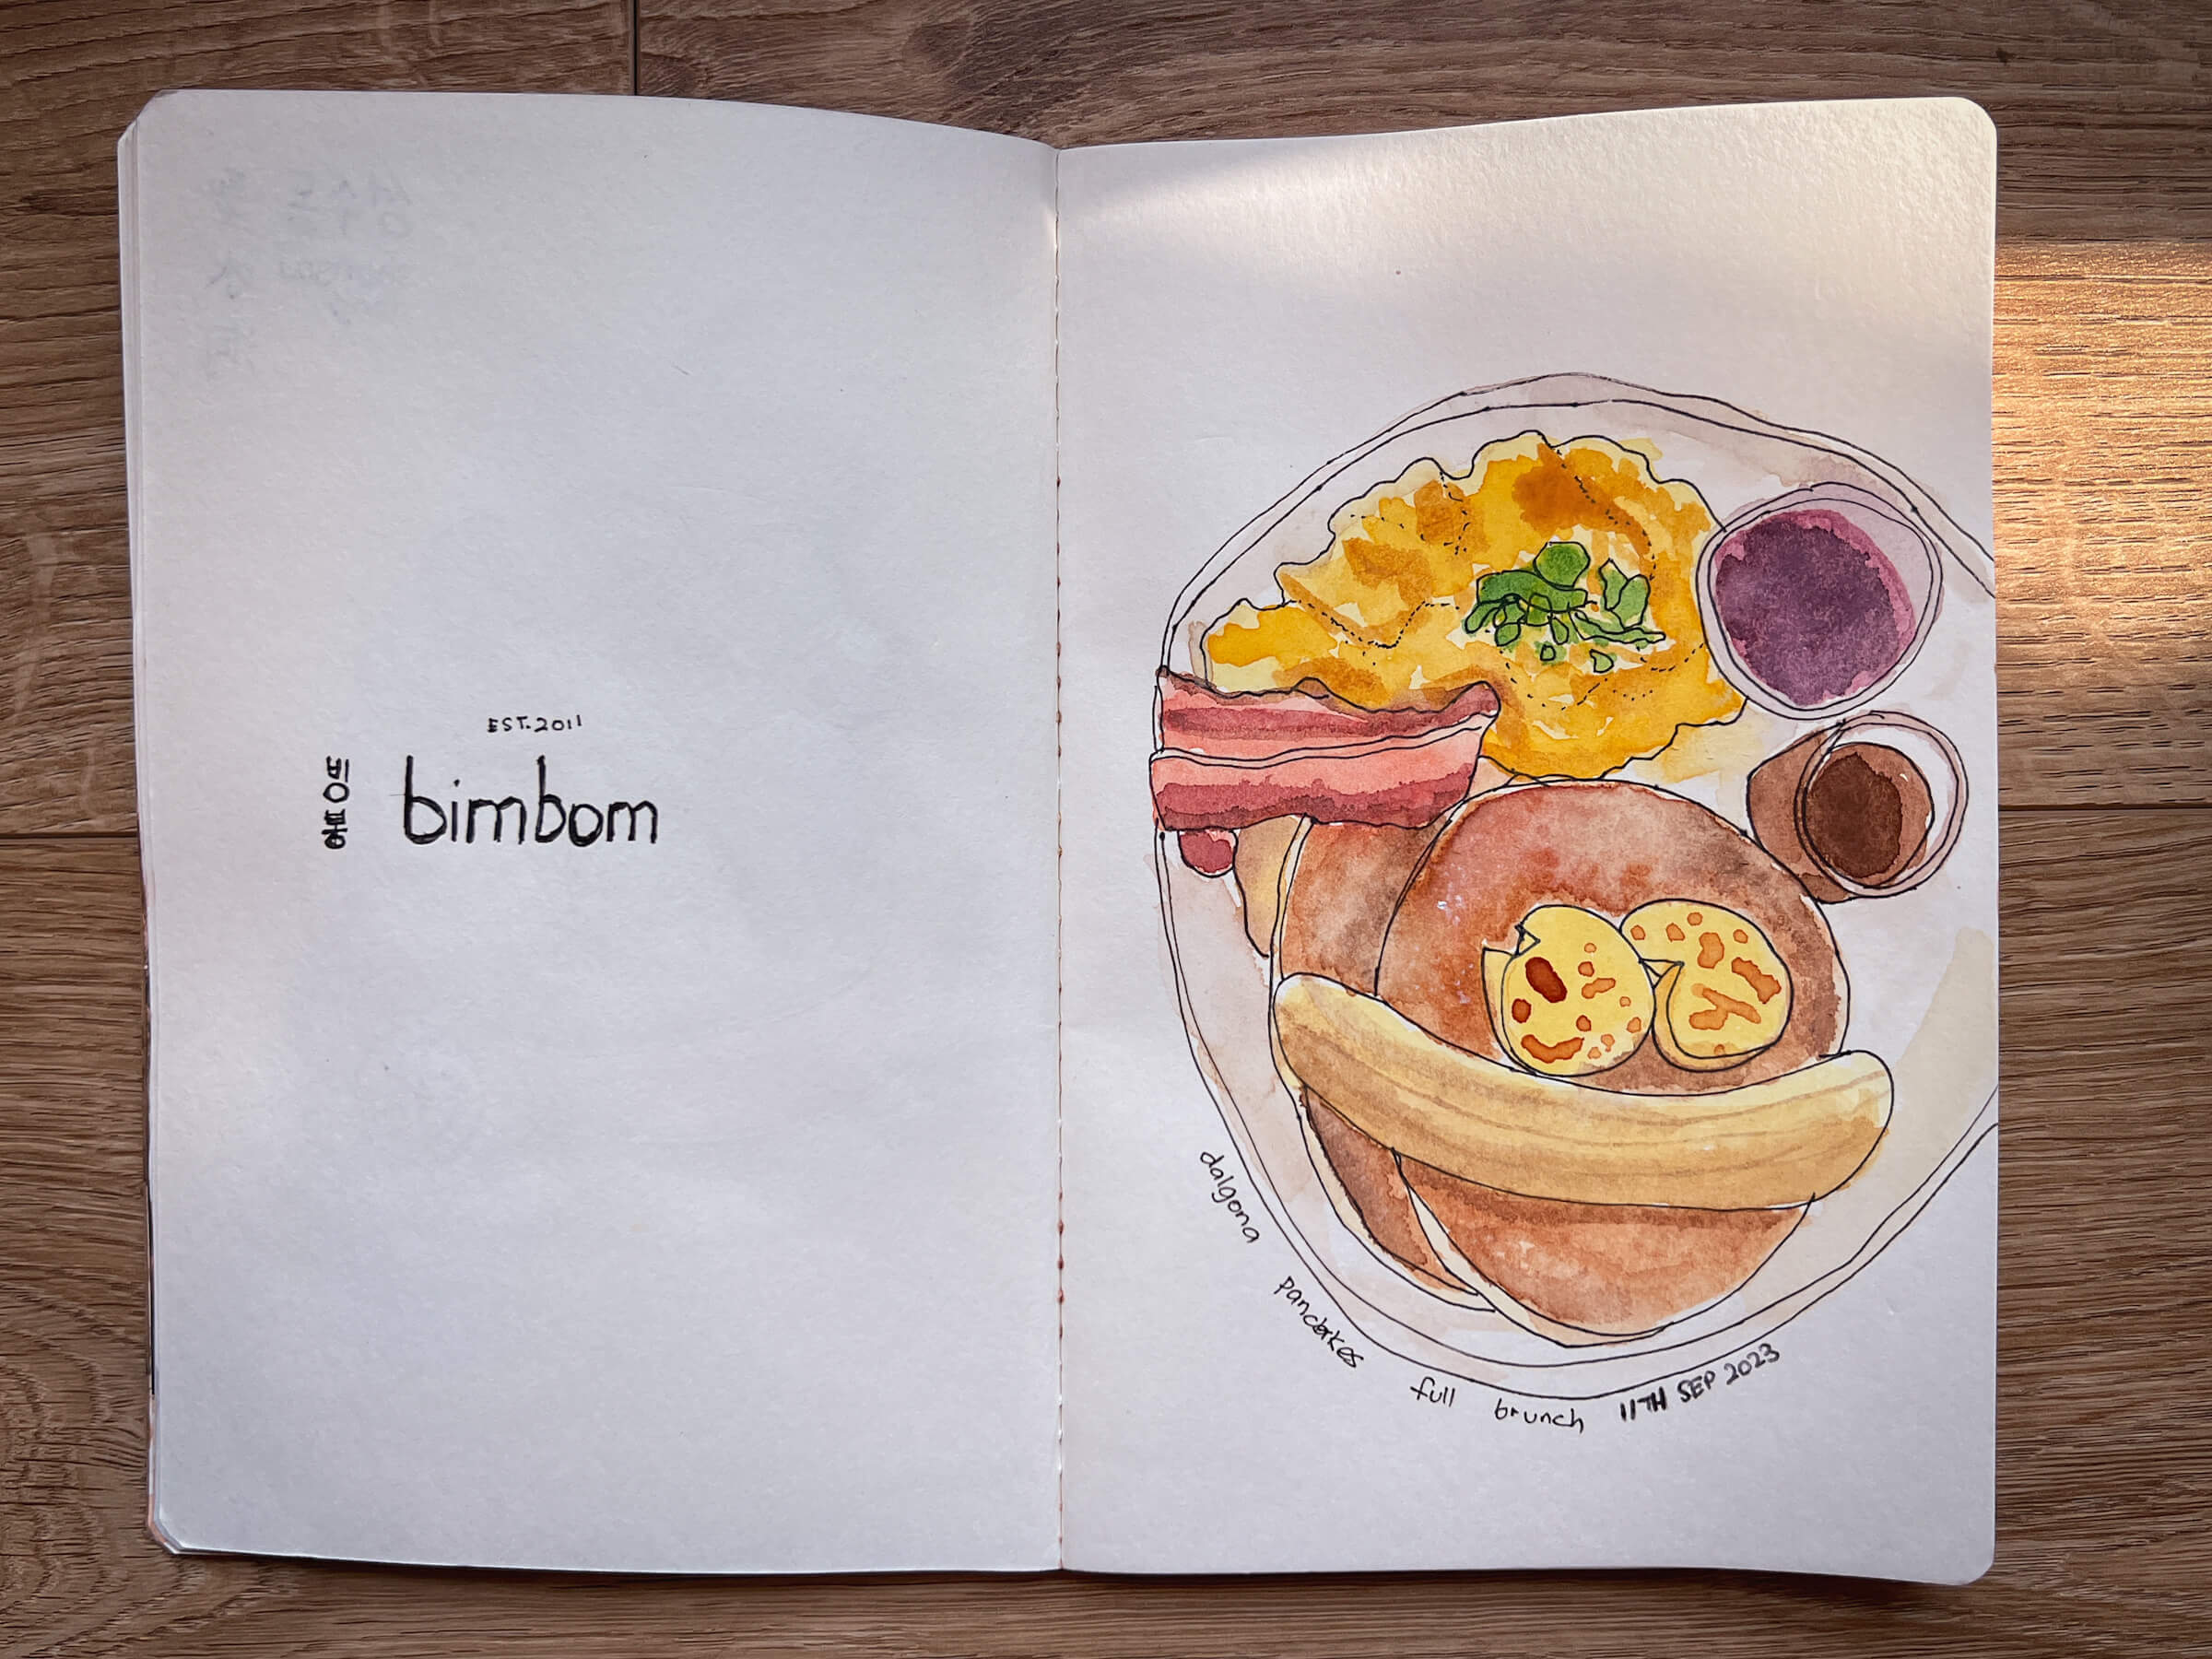 EST.2011
bimbom
dalgona pancakes full brunch 11TH SEP 2023